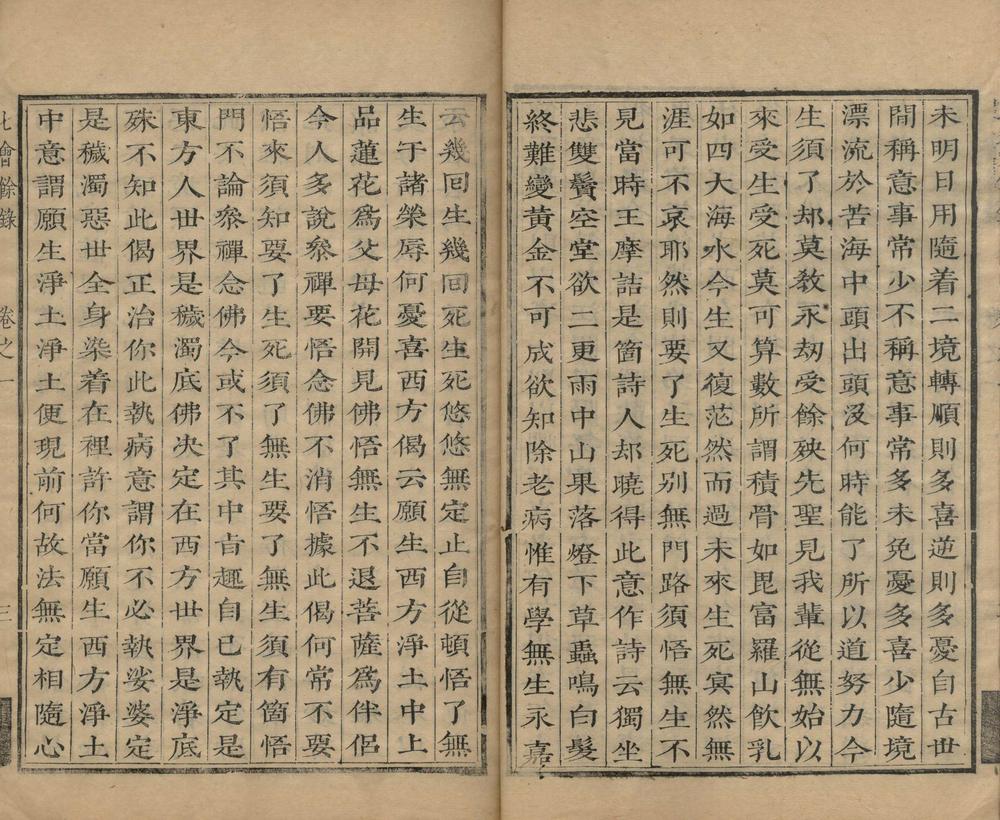 未明日用隨着二境轉順則多喜逆則多憂自古世
間稱意事常少不稱意事常多未免憂多喜少隨境
漂流於苦海中頭出頭沒何時能了所以道努力今
生須了却莫敎永劫受餘殃先聖見我輩從無始以
來受生受死莫可算數所謂積骨如毘富羅山飲乳
如四大海水今生又復茫然而過未來生死㝠然無
涯可不哀耶然則要了生死別無門路須悟無生不
見當時王摩詰是箇詩人却曉得此意作詩云獨坐
悲雙鬢空堂欲二更雨中山果落燈下草蟲鳴白髮
終難變黃金不可成欲知除老病惟有學無生永嘉
云幾回生幾回死生死悠悠無定止自從頓悟了無
生于諸榮辱何憂喜西方偈云願生西方淨土中上
品蓮花爲父母花開見佛悟無生不退菩薩爲伴侶
今人多說叅禪要悟念佛不消悟據此偈何常不要
悟來須知要了生死須了無生要了無生須有箇悟
門不論叅禪念佛今或不了其中旨趣自已執定是
東方人世界是穢濁底佛决定在西方世界是淨底
殊不知此偈正治你此執病意謂你不必執娑婆定
是穢濁惡世全身染着在裡許你當願生西方淨土
中意謂願生淨土淨土便現前何故法無定相隨心
七會餘錄 卷之一 三